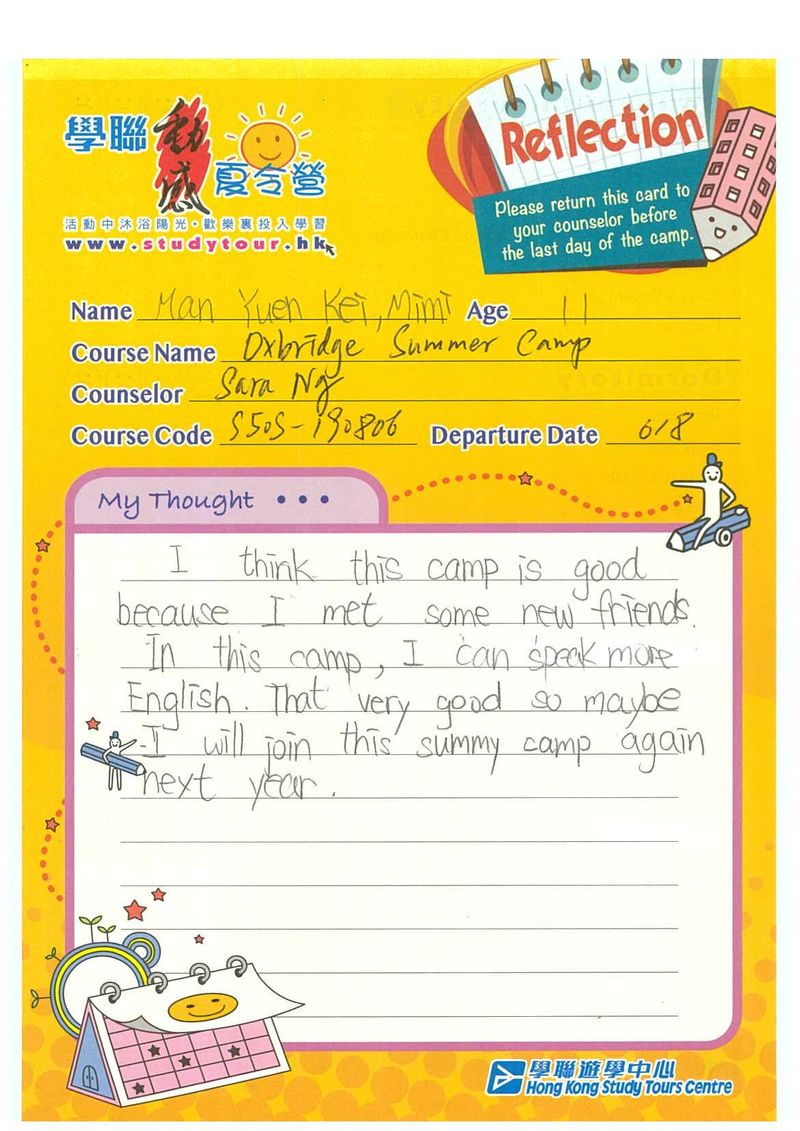 學聯 動感 夏令營
活動中沐浴陽光・歡樂裏投入學習
www.studytour.hk
Reflection
Please return this card to
your counselor before
the last day of the camp.
Name Man Yuen Kei, Mimi Age 11
Course Name Oxbridge Summer Camp
Counselor Sara Ng
Course Code S50S-190806 Departure Date 6/8
My Thought • • •
I think this camp is good
because I met some new friends.
In this camp, I can speak more
English. That very good so maybe
I will join this summy camp again
next year.
學聯遊學中心
Hong Kong Study Tours Centre